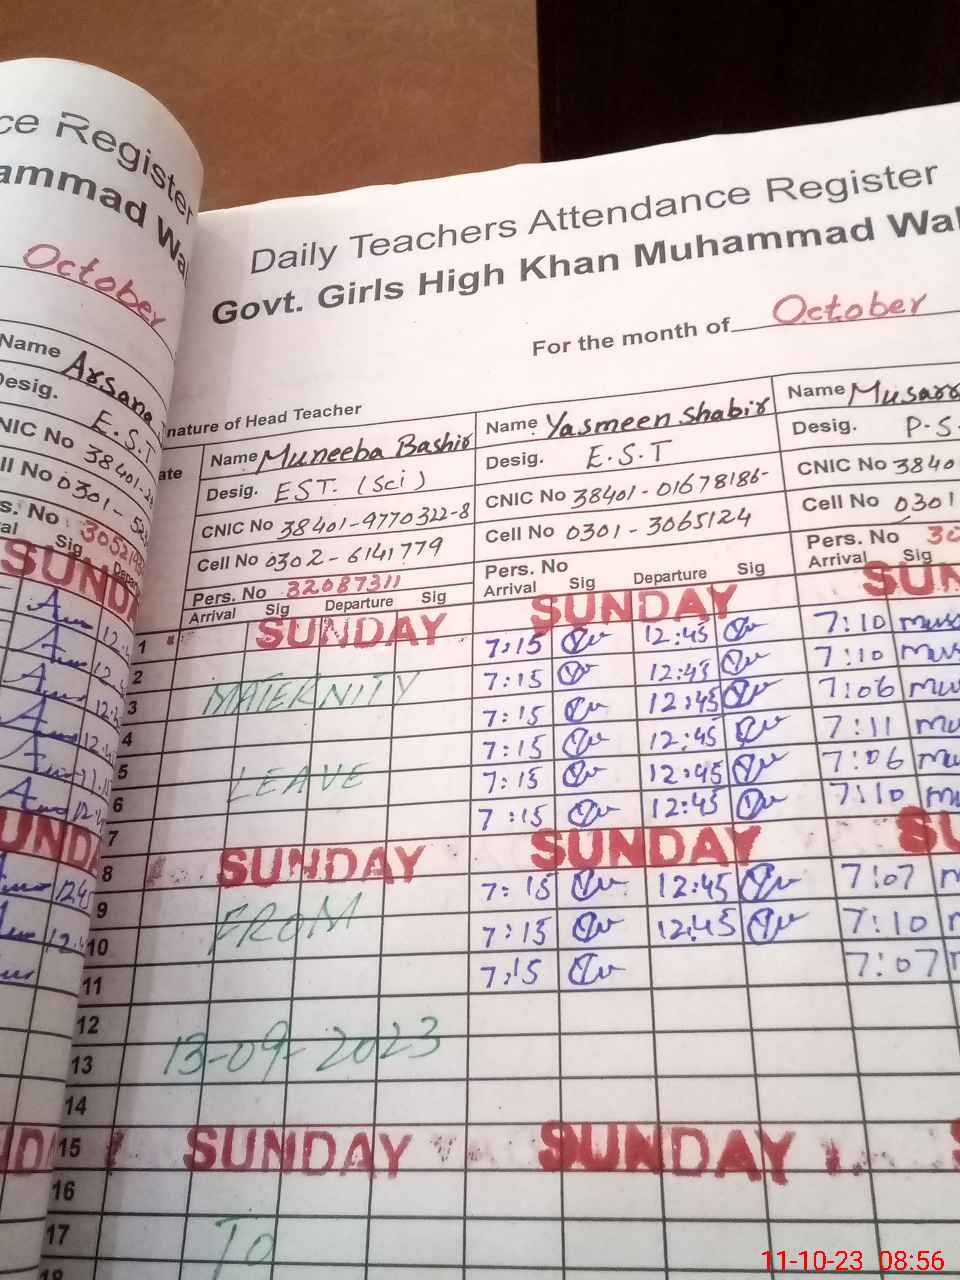 ce Register
ammad Wal
October
Name Arsana
Desig. E.S.T
NIC No 38401-
ll No 0301-
s. No
Sig
SUNDA
SUNDA
Daily Teachers Attendance Register
Govt. Girls High Khan Muhammad Wal
For the month of October
nature of Head Teacher
ate
Name Muneeba Bashir
Desig. EST. (Sci)
CNIC No 38401-9770322-8
Cell No 0302-6141779
Pers. No 32087311
Arrival Sig Departure Sig
Name Yasmeen Shabir
Desig. E.S.T
CNIC No 38401-01678186-
Cell No 0301-3065124
Pers. No
Arrival Sig Departure Sig
Name Musarr
Desig. P.S.
CNIC No 3840
Cell No 0301
Pers. No 30
Arrival Sig
1 SUNDAY SUNDAY SUN
2 7:15 12:45 7:10
3 MATERNITY 7:15 12:45 7:10
4 7:15 12:45 7:06
5 LEAVE 7:15 12:45 7:11
6 7:15 12:45 7:06
7 7:15 12:45 7:10
8 SUNDAY SUNDAY SU
9 FROM 7:15 12:45 7:07
10 7:15 12:45 7:10
11 7:15 7:07
12
13 13-09-2023
14
15 SUNDAY SUNDAY S
16
17 To
18
11-10-23 08:56